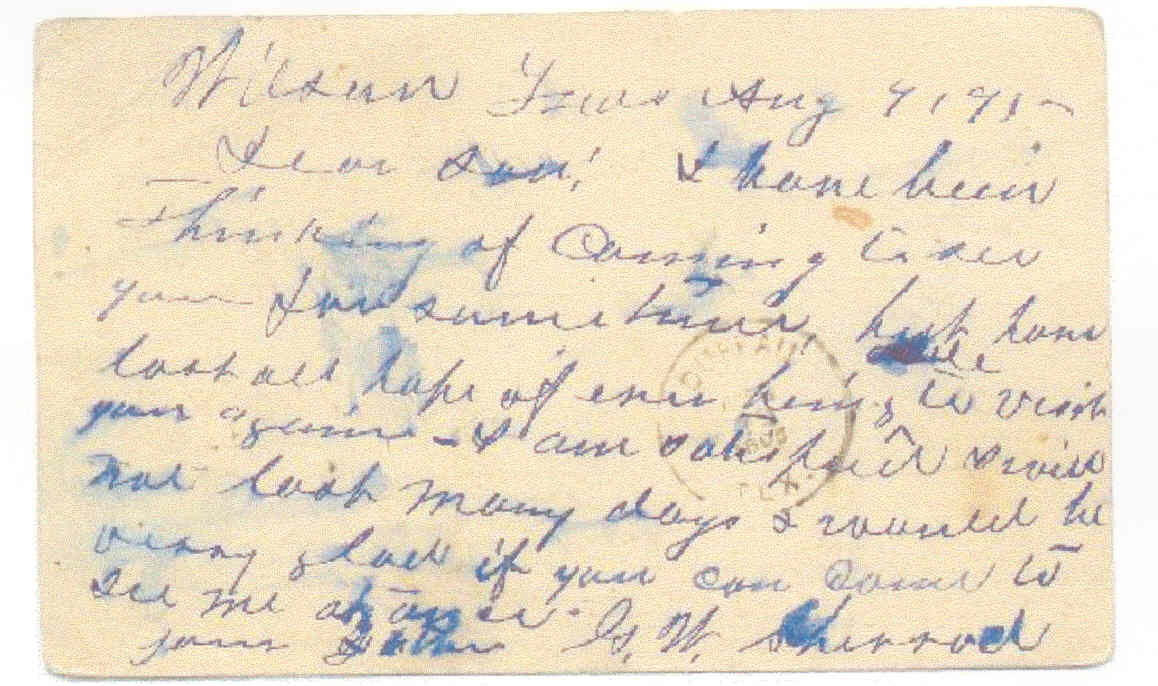 Wilson Texas Aug 9, 191-
Dear Son, I have bein
Thinking of Coming to see
you for some time, but have
lost all hope of ever being able to visit
you again - I am satisfied I will
not last many days I would be
verry glad if you can Come to
see me at once
your Father G. W. Sherrod
TEX.